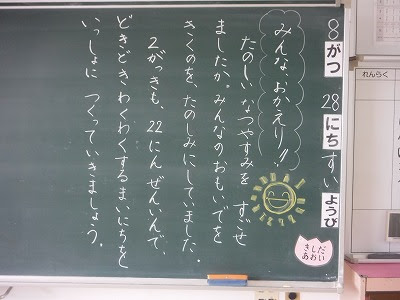 8がつ28にちすいようび
みんな、おかえり!!
たのしいなつやすみを すごせ
ましたか。みんなのおもいでを
きくのを、たのしみにしていました。
2がっきも、22にんぜんいんで、
どきどきわくわくするまいにちを
いっしょに つくっていきましょう。
きしだ
あおい
れんらく